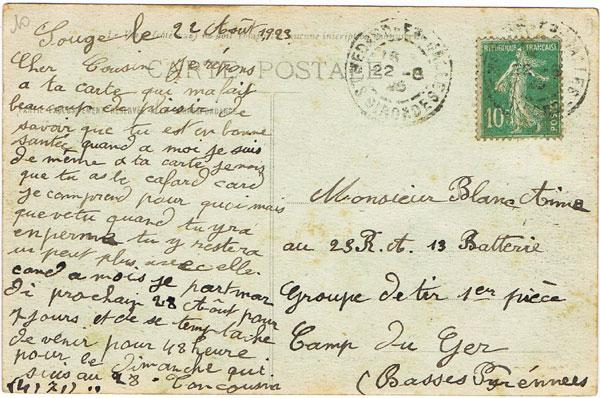 Souge le 22 Août 1923
CARTE POSTALE
Cher Cousin je répons
a ta carte qui ma fait
beaucoup de plaisir de
savoir que tu est en bonne
santée quand a moi je suis
de même a ta carte je vois
que tu as le cafard card
je comprend pour quoi mais
que vetu quand tu yra
en perme tu y restera
un peut plus avec elle
cand a mois je part mar
di prochain 28 Août pour
7 jours et de se temp la che
de venir pour 48 heure
pour le dimanche qui
Ton cousin
22 -8
GIRONDE
RÉPUBLIQUE FRANÇAISE
10c
POSTES
Monsieur Blanc Aimé
au 23 R. A. 13 Batterie
Groupe de tir 1er pièce
Camp du Ger
(Basses Pyrénnées